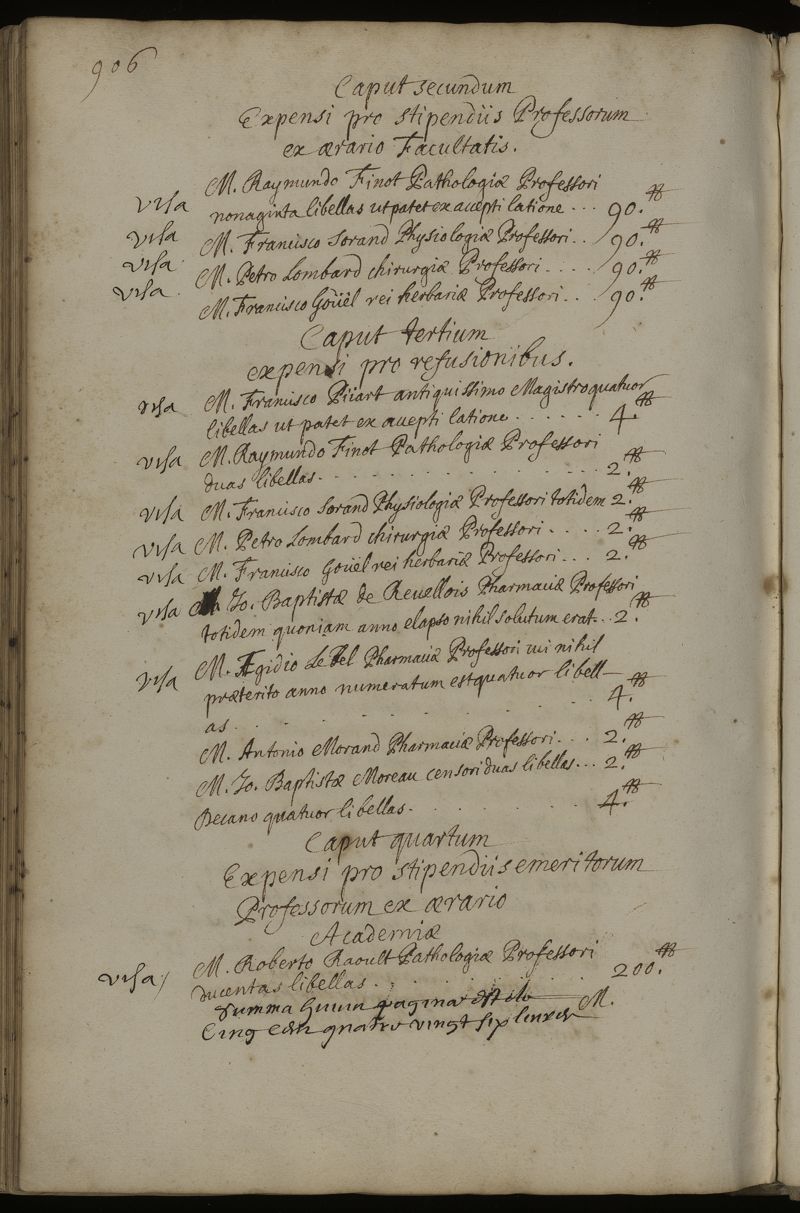 906
Caput secundum
Expensi pro stipendiis Professorum
ex ærario Facultatis.
M. Raymundo Finot Pathologiæ Professori
visa nonaginta libellas ut patet ex accepti latione ... 90.₶
visa M. Francisco Sorand Physiologiæ Professori .. 90.₶
visa M. Petro Lombard chirurgiæ Professori .... 90.₶
visa M. Francisco Goüel rei herbariæ Professori .. 90.₶
Caput tertium
expensi pro refusionibus.
visa M. Francisco Piiart antiquissimo Magistro quatuor
libellas ut patet ex accepti latione ....... 4.₶
visa M. Raymundo Finot Pathologiæ Professori
duas libellas ............ 2.₶
visa M. Francisco Sorand Physiologiæ Professori totidem 2.₶
visa M. Petro Lombard chirurgiæ Professori .... 2.₶
visa M. Francisco Goüel rei herbariæ Professori ... 2.₶
visa M. Jo. Baptistæ de Reuellois Pharmaciæ Professori
totidem quoniam anno elapso nihil solutum erat .. 2.₶
visa M. Ægidio Le Bel Pharmaciæ Professori cui nihil
præterito anno numeratum est quatuor libell-
as .......... 4.₶
M. Antonio Morand Pharmaciæ Professori ... 2.₶
M. Jo. Baptistæ Moreau censori duas libellas ... 2.₶
Decano quatuor libellas ........ 4.₶
Caput quartum
Expensi pro stipendiis emeritorum
Professorum ex ærario
Academiæ
M. Roberto Raoult Pathologiæ Professori
visa ducentas libellas ......... 200.₶
Summa huius paginæ est de M.
Cinq cens quatre vingt six liures